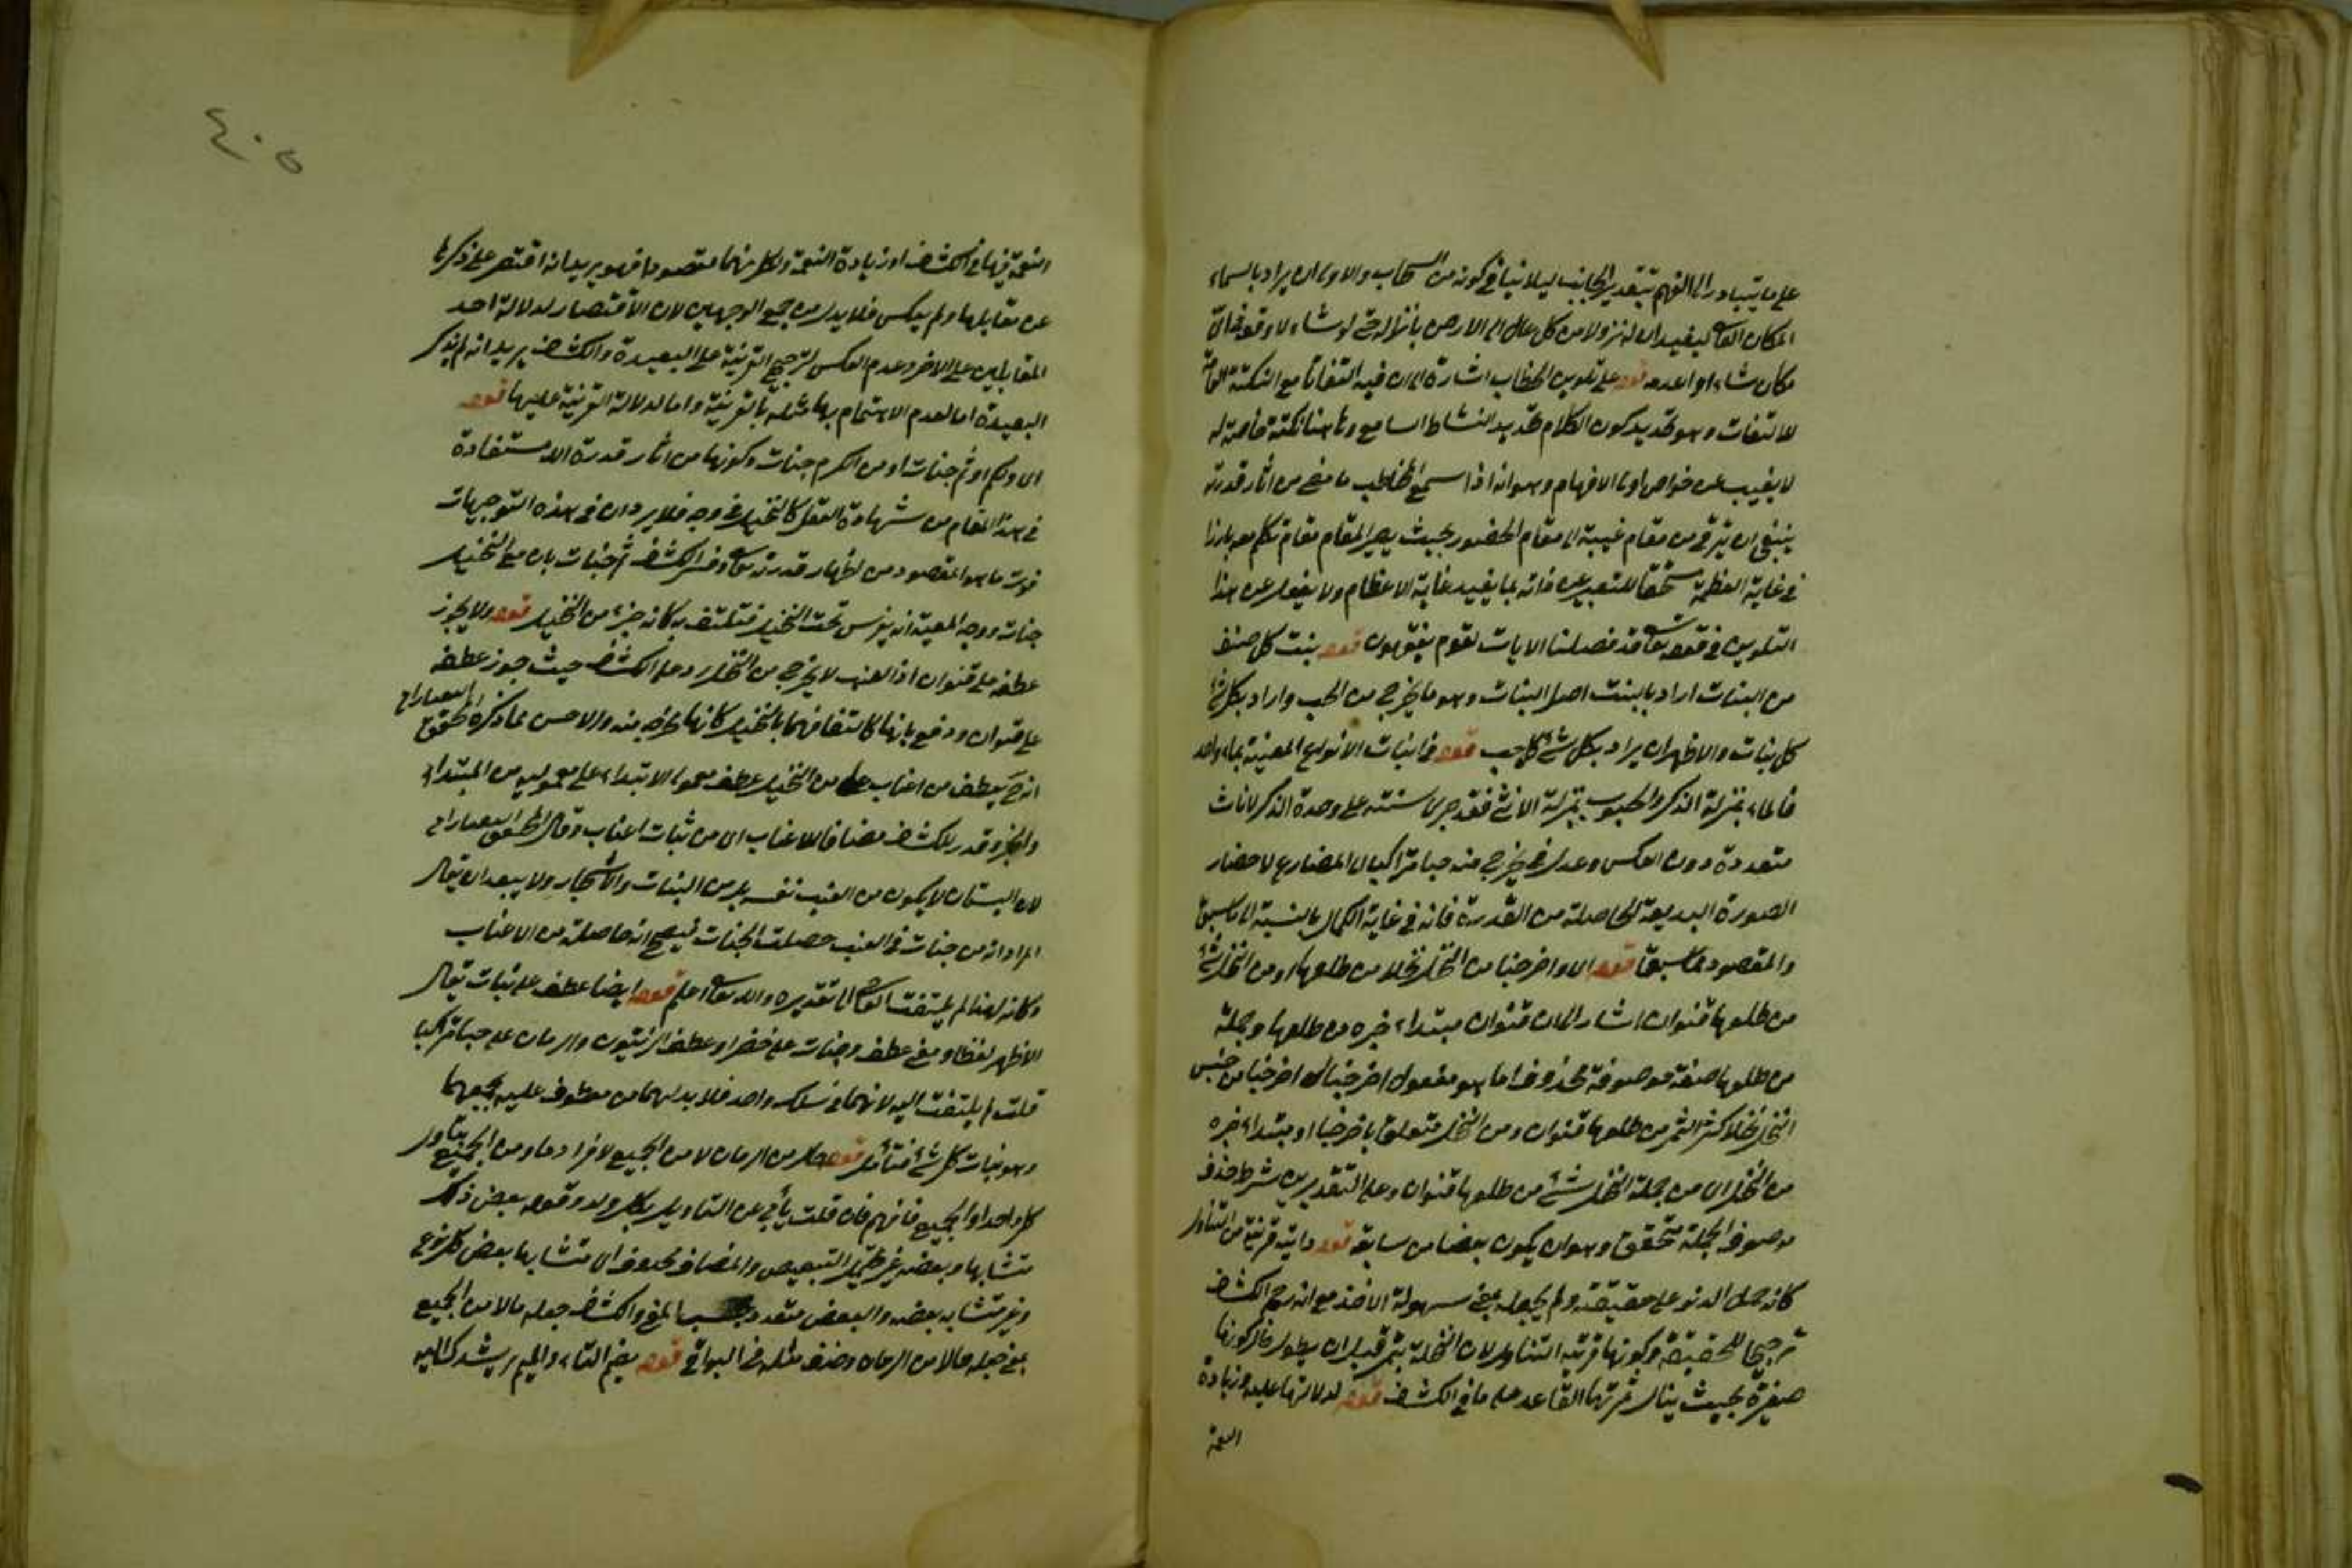 على ما يتبادر الى الفهم بتقدير الجانب ليلا ينافي كونه من السحاب والاولى ان يراد بالسماء
المكان العالي ليفيد ان له نزولا من كل عال الى الارض بانزاله حتى لو شاء لاوقعه في اي
مكان شاء او اعدمه قوله على تلوين الخطاب اشارة الى ان فيه التفاتا مع النكتة العامة
للالتفات وهو تجديد كون الكلام تجديد النشاط السامع وثم هنا نكتة خاصة له
لا يغيب عن خواص اولى الافهام وهو انه اذا سمع المخاطب ما مضى من اثار قدرته
ينبغي ان يترقى من مقام غيبة الى مقام الحضور بحيث يصير المقام مقام تكلم معه بارزا
في غاية العظمة مستحقا للتعبير عن ذاته بما يفيد غاية الاعظام ولا يغفل عن هذا
التلوين في قوله تعالى قد فصلنا الايات لقوم يفقهون قوله نبت كل صنف
من النبات اراد بالنبت اصل النبات وهو ما يخرج من الحب واراد بكل شئ
كل نبات والاظهر ان يراد بكل شئ كل حب قوله في انبات الانواع المعينة بماء واحد
فالماء بمنزلة الذكر والحبوب بمنزلة الانثى فقد جرى سنته على وحدة الذكر لاناث
متعددة دون العكس وعدل في يخرج منه حبا متراكبا الى المضارع لاحضار
الصورة البديعة الحاصلة من القدرة فانه في غاية الكمال بالنسبة الى ما سبق
والمقصود مما سبق قوله اى واخرجنا من النخل نخلا من طلعها او من النخل شئ
من طلعها قنوان اشار الى ان قنوان مبتداء خبره من طلعها وجملة
من طلعها صفة موصوفة محذوف اما هو مفعول اخرجنا اى اخرجنا من جنس
النخل نخلا كثير الثمر من طلعها قنوان ومن النخل متعلق باخرجنا او مبتداء خبره
من النخل اى من جملة النخل شئ من طلعها قنوان وعلى التقديرين شرط حذف
موصوف الجملة متحقق وهو ان يكون بعضا من سابقه قوله دانية قريبة من المتناول
كانه حمل الدنو على حقيقته ولم يجعله بمعنى سهولة الاخذ مع انه رجح الكشف
ترجيحا للحقيقة وكونها قريبة المتناول لان النخلة تثمر قبل ان يطول حال كونها
صغيرة بحيث ينال ثمرتها القاعد على ما في الكشف قوله لدلالتها عليه وزيادة
النعمة
٤٠٥
النعمة فيها في الكشف او زيادة النعمة ولكل منهما مقصودا فهو يريد انه اقتصر على ذكرها
عن مقابلها ولم يعكس فلا بد من جمع الوجهين لان الاقتصار لدلالة احد
المقابلين على الاخر وعدم العكس لترجيح القريبة على البعيدة والكشف يريد انه لم يذكر
البعيدة اما لعدم الاهتمام بها مثله بالقريبة واما لدلالة القريبة عليها قوله
اى ولكم او ثم جنات او من الكرم جنات وكونها من اثار قدرة الله مستفادة
في هذا المقام من شهادة العقل كالنخيل في وجه فلا يرد ان في هذه التوجيهات
فوت ما هو المقصود من اظهار قدرته تعالى وفسر الكشف ثم جنات بان مع النخيل
جنات ووجه المعية انه يغرس تحت النخيل فتلتف به كانه جزء من النخيل قوله ولا يجوز
عطفه على قنوان اذ العنب لا يخرج من النخل رد على الكشف حيث جوز عطفه
على قنوان ودفع بانها كالتفافهما بالنخيل كانها مخرجه منه والاحسن مما ذكره المحقق التفتازاني
انه يعطف من اعناب على من النخيل عطف معمولى الابتداء على معموليه من المبتداء
والخبر وقدر الكشف مضافا للاعناب اى من نبات اعناب وقال المحقق التفتازاني
لان البستان لا يكون من العنب نفسه بل من النبات والاشجار ولا يبعد ان يقال
المراد انه من جنات في العنب حصلت الجنات فيصح انه حاصلة من الاعناب
وكانه لهذا لم يلتفت القاضي الى تقديره والله تعالى اعلم قوله ايضا عطف على نبات يقال
الاظهر لفظا ومعنى عطف وجنات على خضرا وعطف الزيتون والرمان على حبا متراكبا
قلت لم يلتفت اليه لانهما في سلك واحد فلا بد لهما من معطوف عليه يجمعهما
وهو نبات كل شئ فتأمل قوله حال من الرمان لا من الجميع لافراد ما ومن الجميع بتاويل
كل واحد او الجميع فافهم فان قلت يأبى عن التاويل بكل واحد وقوله بعض ذلك
متشابها وبعضه غير متشابه التبعيض والمضاف محذوف اى متشابها بعض كل نوع
وغير متشابه بعضه والبعض متعدد بحسب المعنى والكشف جعله حالا من الجميع
بمعنى جعله حالا من الرمان وحذف مثله في البواقي قوله بضم الثاء والميم يرشدك اليه